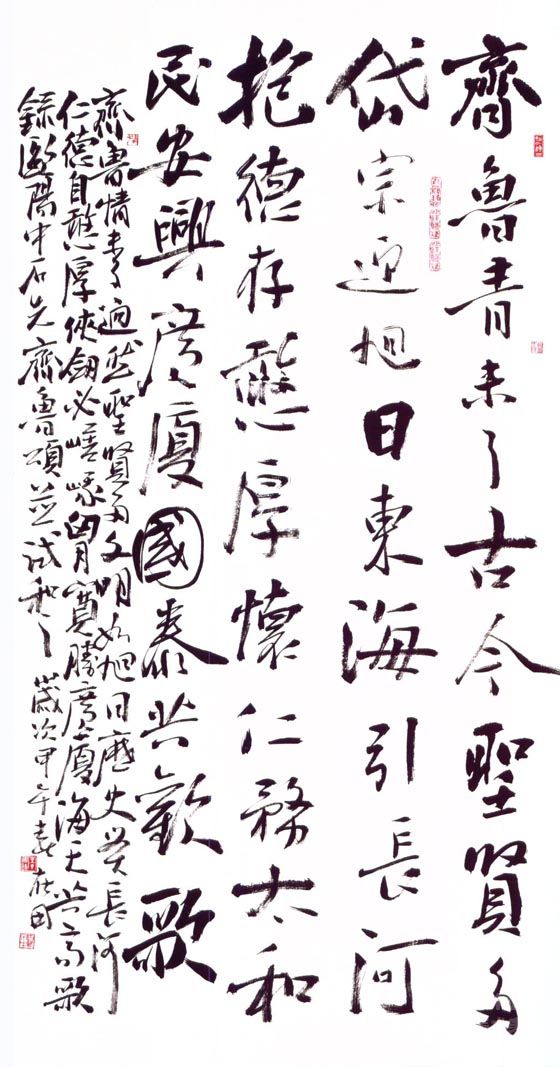 齊魯青未了古今聖賢多
岱宗迎旭日東海引長河
抱德存憨厚懷仁務太和
民安興廣廈國泰共歡歌
齊魯情未了迥然聖賢多文明如旭日歷史長河
仁德自憨厚俠劍必嵯峨胸寬勝廣廈海天共高歌
錄歐陽中石先齊魯頌並試和之 歲次甲午春 在田